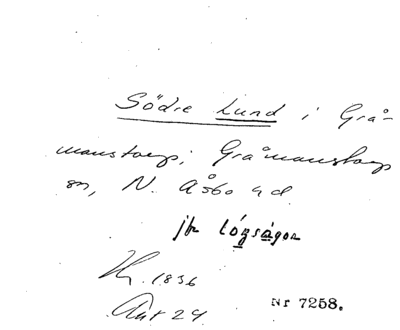 Södre Lund i Grå-
manstorp, Gråmanstorp
sn, N. Åsbo hd.
jfr lózságor
1836
Akt 24
Nr 7258.